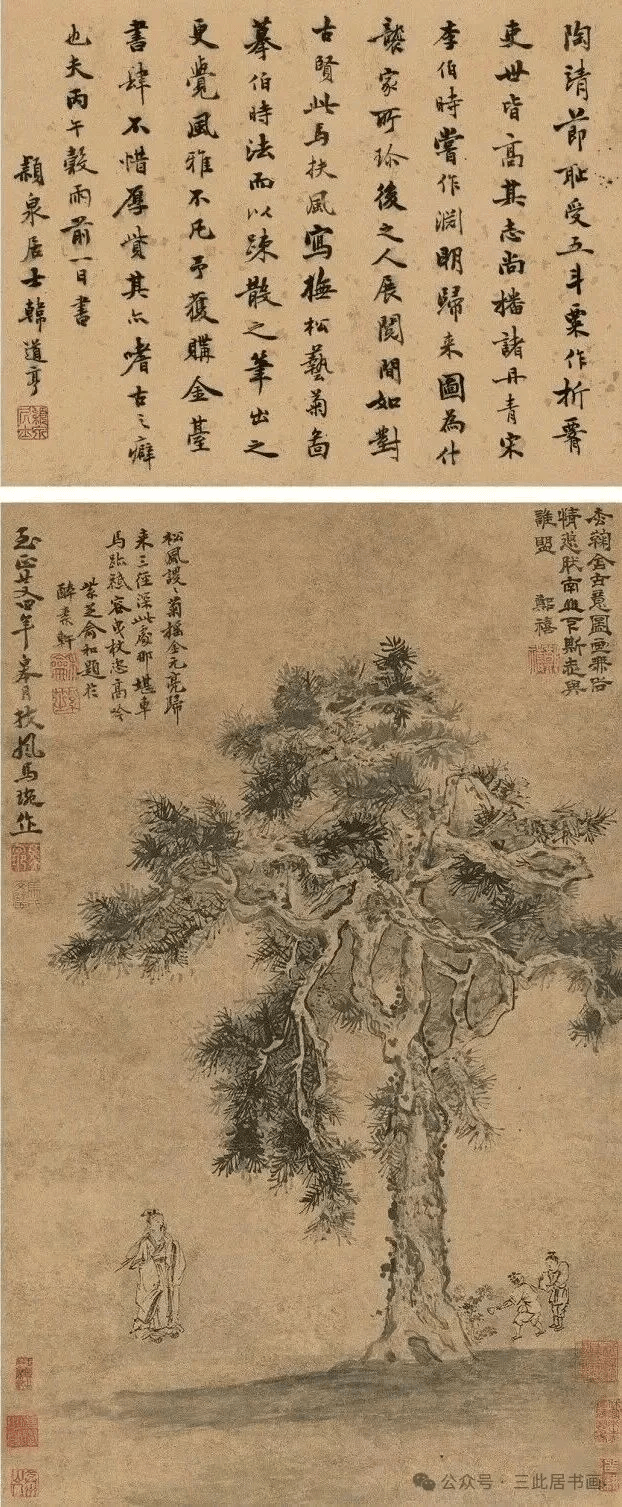 陶清節恥受五斗粟作折腰
吏世皆高其志尚播諸丹青宋
李伯時嘗作淵明歸來圖為什
襲家所珍後之人展閱間如對
古賢此馬扶風寫撫松藝菊啚
摹伯時法而以踈散之筆出之
更覺風雅不凡予獲購金臺
書肆不惜厚貲其亦嗜古之癖
也夫丙午穀雨前一日書
穎泉居士韓道亨
秀菊含古意圖畫
情悠肰南山下斯
誰盟 鄭禧
松風謖〻菊搖金元亮歸
來三徑深此處那堪車
馬跡疏容曳杖恣高吟
紫芝俞和題於
醉素軒
至正廿四年皋月扶風馬琬作
公众号·三此居书画